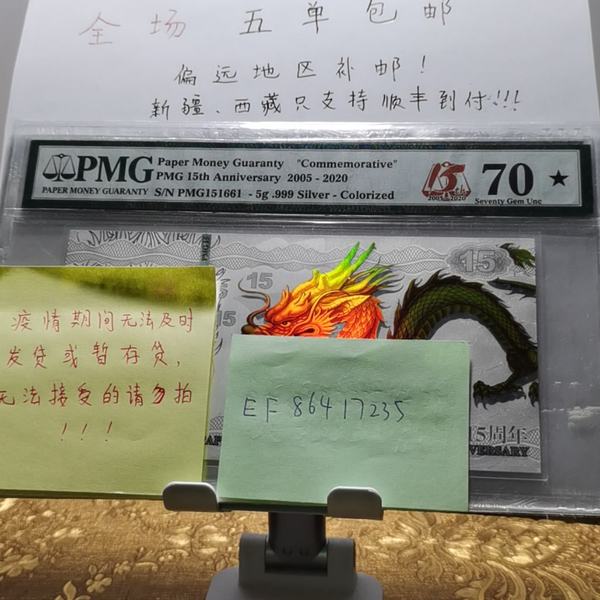 全场 五单包邮
偏远地区补邮!
新疆、西藏只支持顺丰到付!!!
PMG
PAPER MONEY GUARANTY
Paper Money Guaranty "Commemorative"
PMG 15th Anniversary 2005 - 2020
S/N PMG151661 - 5g .999 Silver - Colorized
15th
2005 & 2020
70 ★
Seventy Gem Unc
15
15
15
疫情期间无法及时
发货或暂存货,
无法接受的请勿拍
!!!
EF 86417235
15周年
VERSARY